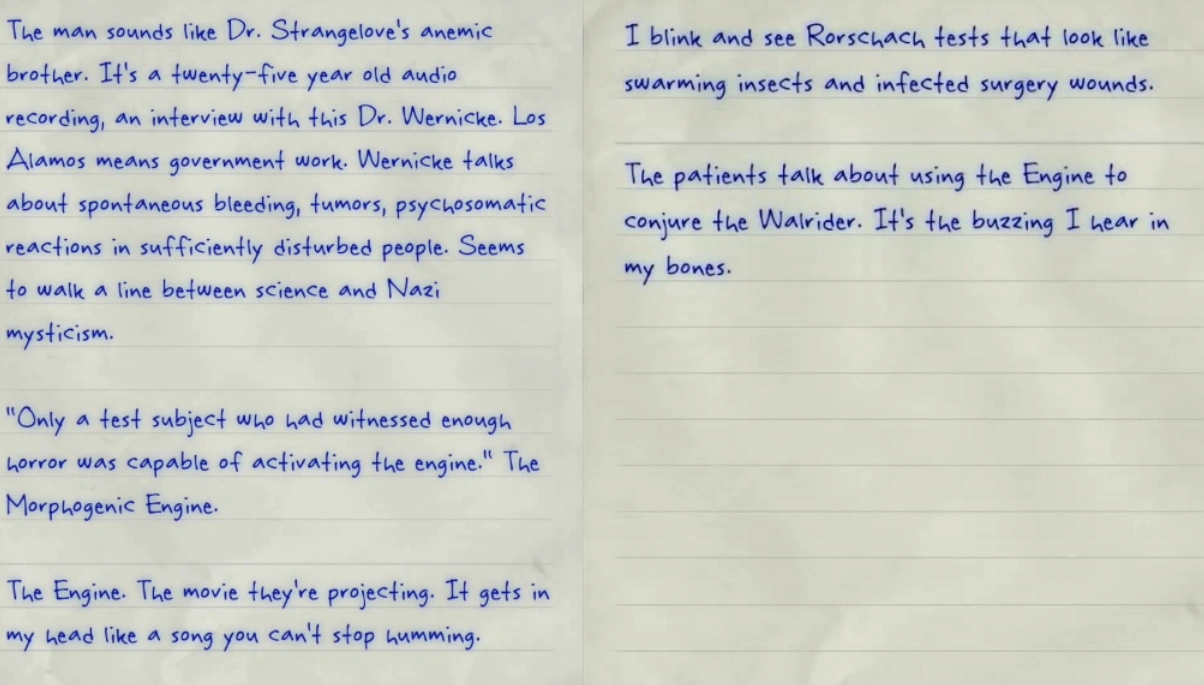 The man sounds like Dr. Strangelove's anemic
brother. It's a twenty-five year old audio
recording, an interview with this Dr. Wernicke. Los
Alamos means government work. Wernicke talks
about spontaneous bleeding, tumors, psychosomatic
reactions in sufficiently disturbed people. Seems
to walk a line between science and Nazi
mysticism.
"Only a test subject who had witnessed enough
horror was capable of activating the engine." The
Morphogenic Engine.
The Engine. The movie they're projecting. It gets in
my head like a song you can't stop humming.
I blink and see Rorschach tests that look like
swarming insects and infected surgery wounds.
The patients talk about using the Engine to
conjure the Walrider. It's the buzzing I hear in
my bones.